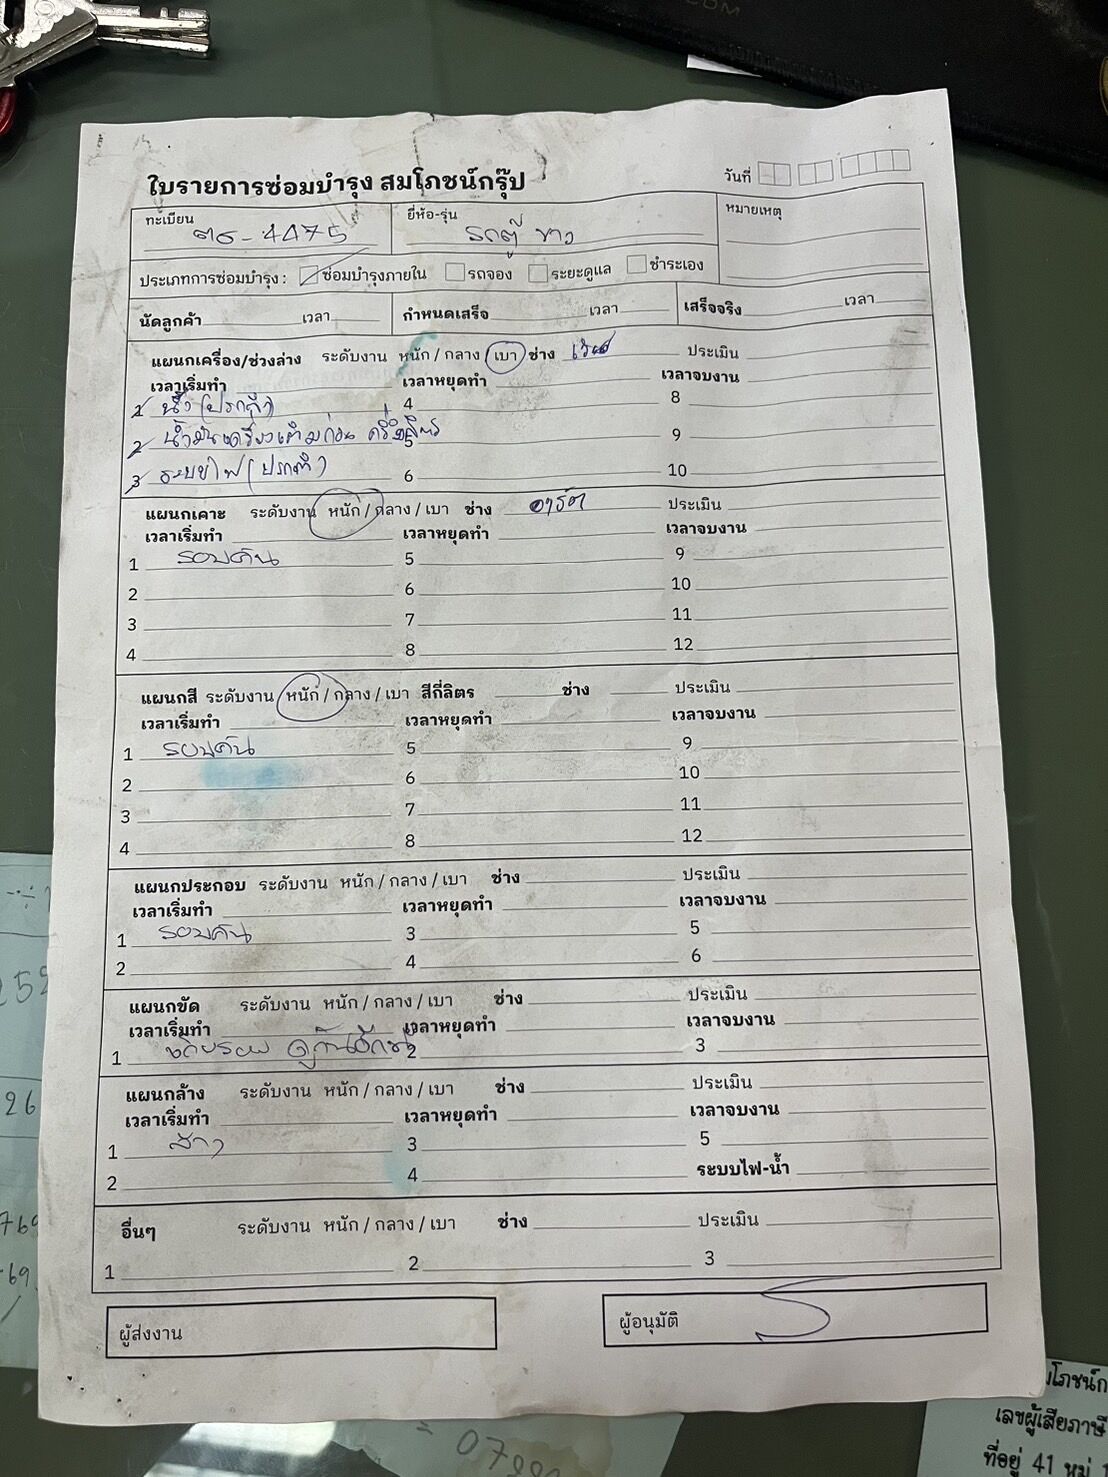 .COM
ใบรายการซ่อมบำรุง สมโภชน์กรุ๊ป
วันที่
ทะเบียน
ยี่ห้อ-รุ่น
หมายเหตุ
-4475 รถตู้ ขาว
ประเภทการซ่อมบำรุง : ซ่อมบำรุงภายใน รถจอง ระยะดูแล ชำระเอง
นัดลูกค้า เวลา กำหนดเสร็จ เวลา เสร็จจริง เวลา
แผนกเครื่อง/ช่วงล่าง ระดับงาน หนัก / กลาง / เบา ช่าง ประเมิน
เวลาเริ่มทำ เวลาหยุดทำ เวลาจบงาน
1 (ปรกติ) 4 8
2 น้ำมันเครื่องเติมก่อน ครึ่งลิตร 5 9
3 ระบบไฟ (ปรกติ) 6 10
แผนกเคาะ ระดับงาน หนัก / กลาง / เบา ช่าง ประเมิน
เวลาเริ่มทำ เวลาหยุดทำ เวลาจบงาน
1 รอบคัน 5 9
2 6 10
3 7 11
4 8 12
แผนกสี ระดับงาน หนัก / กลาง / เบา สีกี่ลิตร ช่าง ประเมิน
เวลาเริ่มทำ เวลาหยุดทำ เวลาจบงาน
1 รอบคัน 5 9
2 6 10
3 7 11
4 8 12
แผนกประกอบ ระดับงาน หนัก / กลาง / เบา ช่าง ประเมิน
เวลาเริ่มทำ เวลาหยุดทำ เวลาจบงาน
1 รอบคัน 3 5
2 4 6
แผนกขัด ระดับงาน หนัก / กลาง / เบา ช่าง ประเมิน
เวลาเริ่มทำ เวลาหยุดทำ เวลาจบงาน
1 2 3
แผนกล้าง ระดับงาน หนัก / กลาง / เบา ช่าง ประเมิน
เวลาเริ่มทำ เวลาหยุดทำ เวลาจบงาน
1 ล้าง 3 5
2 4 ระบบไฟ-น้ำ
อื่นๆ ระดับงาน หนัก / กลาง / เบา ช่าง ประเมิน
1 2 3
ผู้ส่งงาน
ผู้อนุมัติ
เลขผู้เสียภาษี
ที่อยู่ 41 หมู่